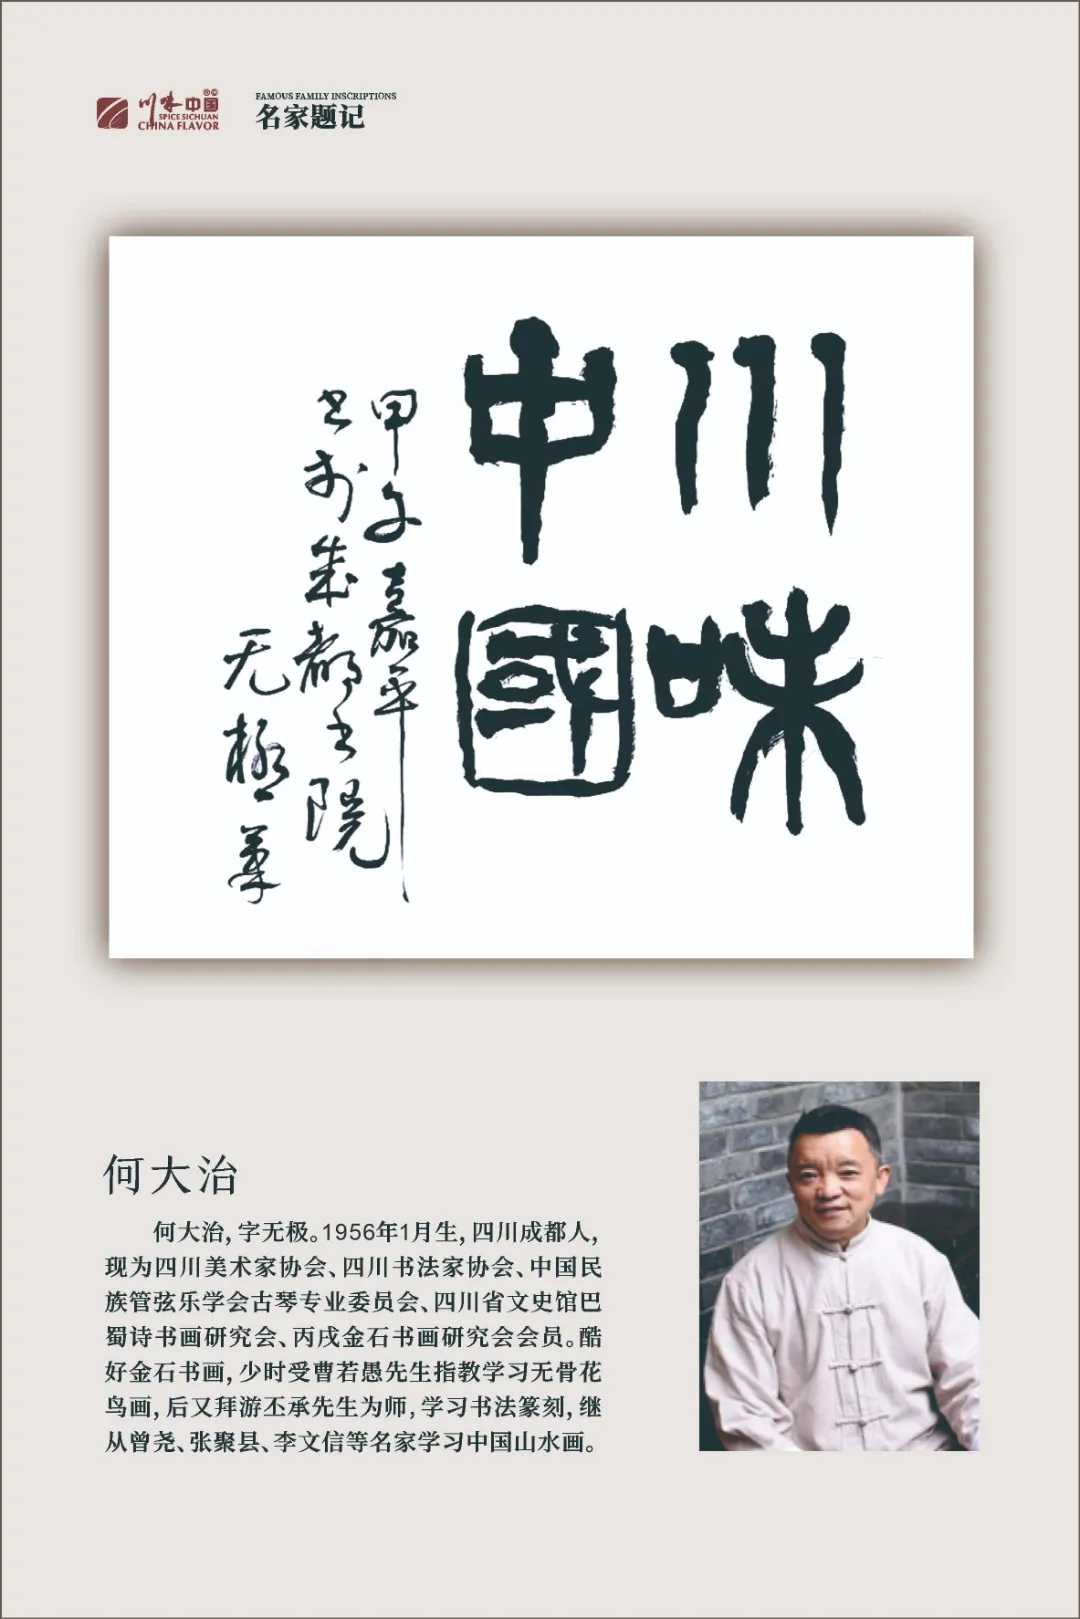 川味中国®©
SPICE SICHUAN
CHINA FLAVOR
FAMOUS FAMILY INSCRIPTIONS
名家题记
川味
中國
甲午嘉平
书于成都书院
无極笔
何大治
何大治,字无极。1956年1月生,四川成都人,
现为四川美术家协会、四川书法家协会、中国民
族管弦乐学会古琴专业委员会、四川省文史馆巴
蜀诗书画研究会、丙戌金石书画研究会会员。酷
好金石书画,少时受曹若愚先生指教学习无骨花
鸟画,后又拜游丕承先生为师,学习书法篆刻,继
从曾尧、张聚县、李文信等名家学习中国山水画。